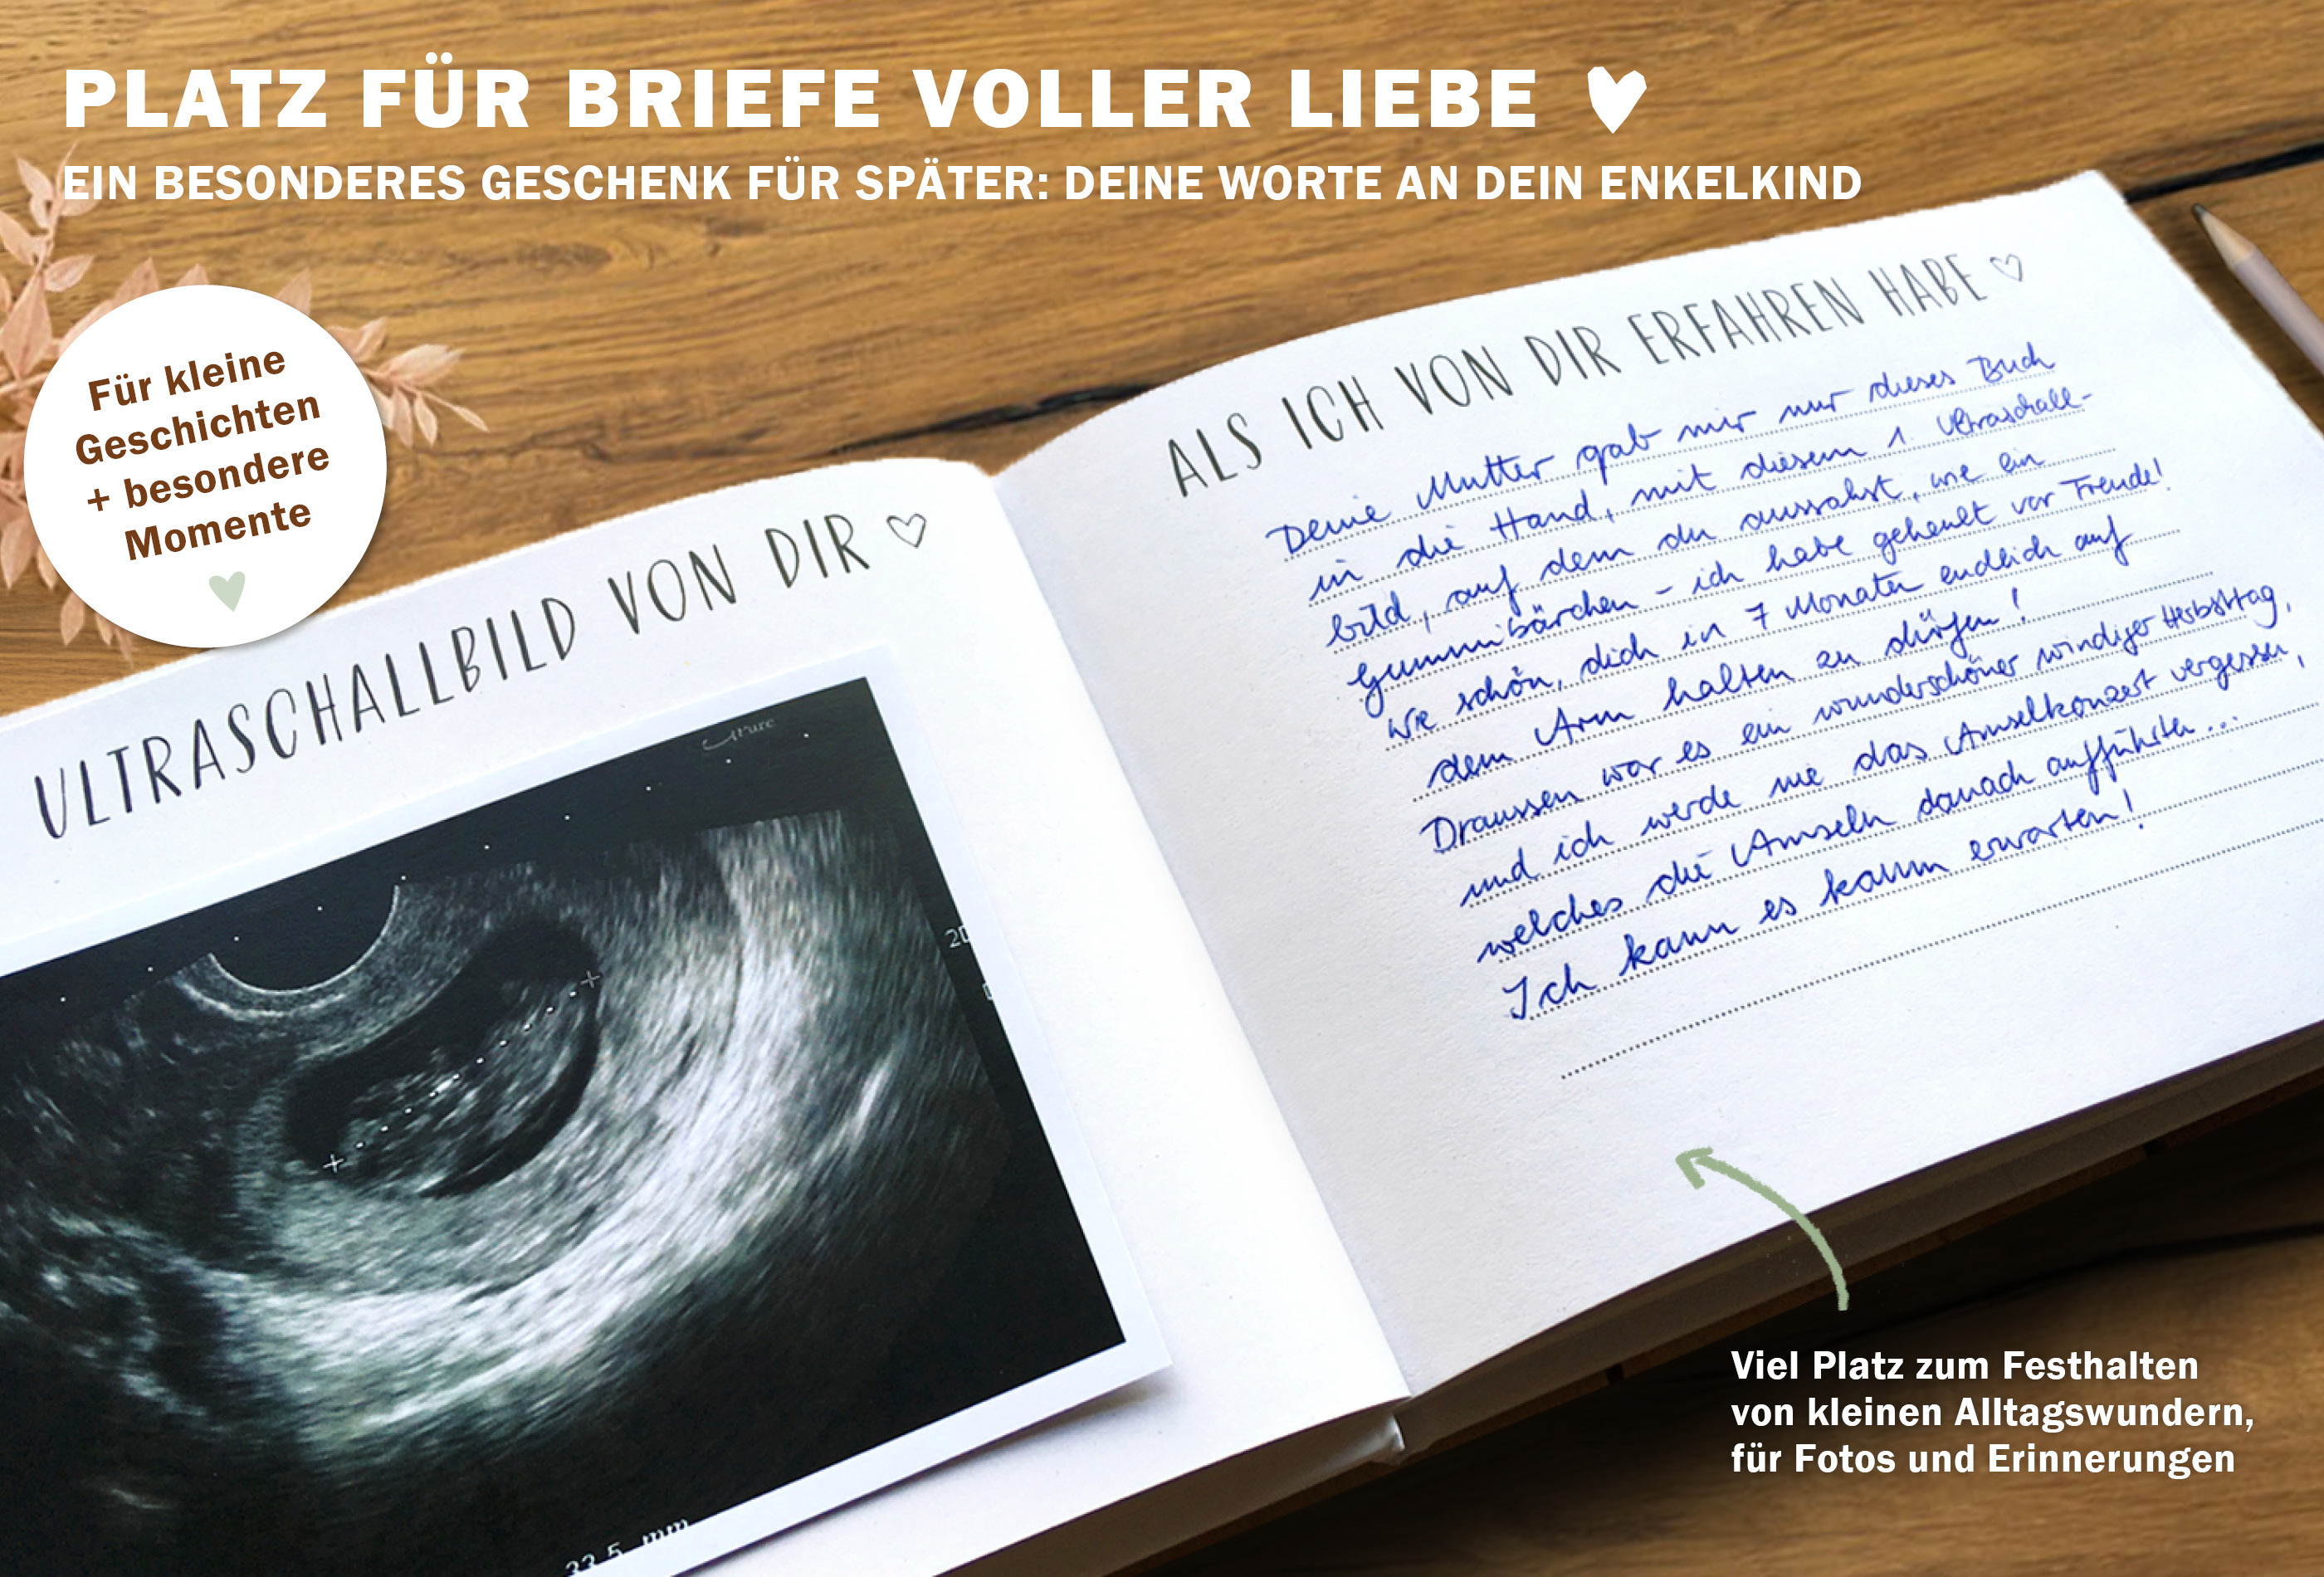 PLATZ FÜR BRIEFE VOLLER LIEBE
EIN BESONDERES GESCHENK FÜR SPÄTER: DEINE WORTE AN DEIN ENKELKIND
Für kleine
Geschichten
+ besondere
Momente
ULTRASCHALLBILD VON DIR
2D
23.5 mm
ALS ICH VON DIR ERFAHREN HABE
Deine Mutter gab mir nur dieses Buch
in die Hand, mit diesem 1. Ultraschall-
bild, auf dem du aussahst, wie ein
Gummibärchen – ich habe geheult vor Freude!
Wie schön, dich in 7 Monaten endlich auf
dem Arm halten zu dürfen!
Draussen war es ein wunderschöner windiger Herbsttag,
und ich werde nie das Amselkonzert vergessen,
welches die Amseln danach aufführten...
Ich kann es kaum erwarten!
Viel Platz zum Festhalten
von kleinen Alltagswundern,
für Fotos und Erinnerungen